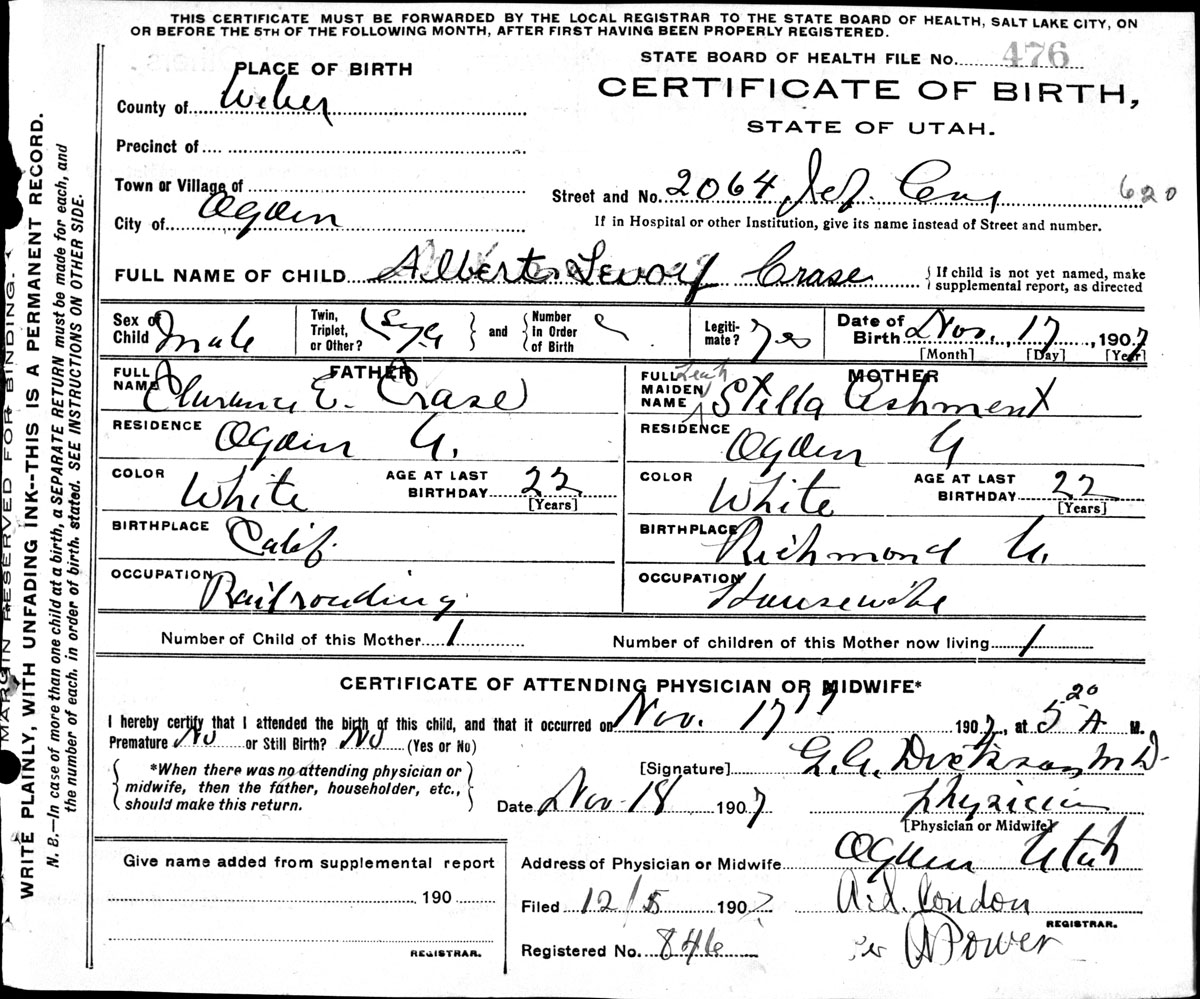 THIS CERTIFICATE MUST BE FORWARDED BY THE LOCAL REGISTRAR TO THE STATE BOARD OF HEALTH, SALT LAKE CITY, ON
OR BEFORE THE 5TH OF THE FOLLOWING MONTH, AFTER FIRST HAVING BEEN PROPERLY REGISTERED.
STATE BOARD OF HEALTH FILE No. 476
CERTIFICATE OF BIRTH,
STATE OF UTAH.
PLACE OF BIRTH
County of Weber
Precinct of
Town or Village of
City of Ogden
Street and No. 2064 Jef. 620
If in Hospital or other Institution, give its name instead of Street and number.
FULL NAME OF CHILD Albert Leroy Crase
If child is not yet named, make
supplemental report, as directed
Sex of Child Male
Twin, Triplet, or Other?
and
Number In Order of Birth
Legiti- mate? Yes
Date of Birth Nov. 17, 1907
[Month] [Day] [Year]
FATHER
FULL NAME Clarance E. Crase
RESIDENCE Ogden U.
COLOR White
AGE AT LAST BIRTHDAY 22
[Years]
BIRTHPLACE Calif.
OCCUPATION Railroading
MOTHER
FULL MAIDEN NAME Leah Stella Ashment
RESIDENCE Ogden U
COLOR White
AGE AT LAST BIRTHDAY 22
[Years]
BIRTHPLACE Richmond U.
OCCUPATION Housewife
Number of Child of this Mother 1
Number of children of this Mother now living 1
CERTIFICATE OF ATTENDING PHYSICIAN OR MIDWIFE*
I hereby certify that I attended the birth of this child, and that it occurred on Nov. 17th 1907, at 5 20 A M.
Premature No or Still Birth? No (Yes or No)
*When there was no attending physician or
midwife, then the father, householder, etc.,
should make this return.
[Signature] Dickson M D-
Date Nov-18 1907
physician
[Physician or Midwife]
Address of Physician or Midwife Ogden Utah
Filed 12/5 1907
A. S. Condon
REGISTRAR.
Registered No. 846
Per Power
Give name added from supplemental report
190
REGISTRAR.
MARGIN RESERVED FOR BINDING.
WRITE PLAINLY, WITH UNFADING INK--THIS IS A PERMANENT RECORD.
N. B.—In case of more than one child at a birth, a SEPARATE RETURN must be made for each, and
the number of each, in order of birth, stated. SEE INSTRUCTIONS ON OTHER SIDE.